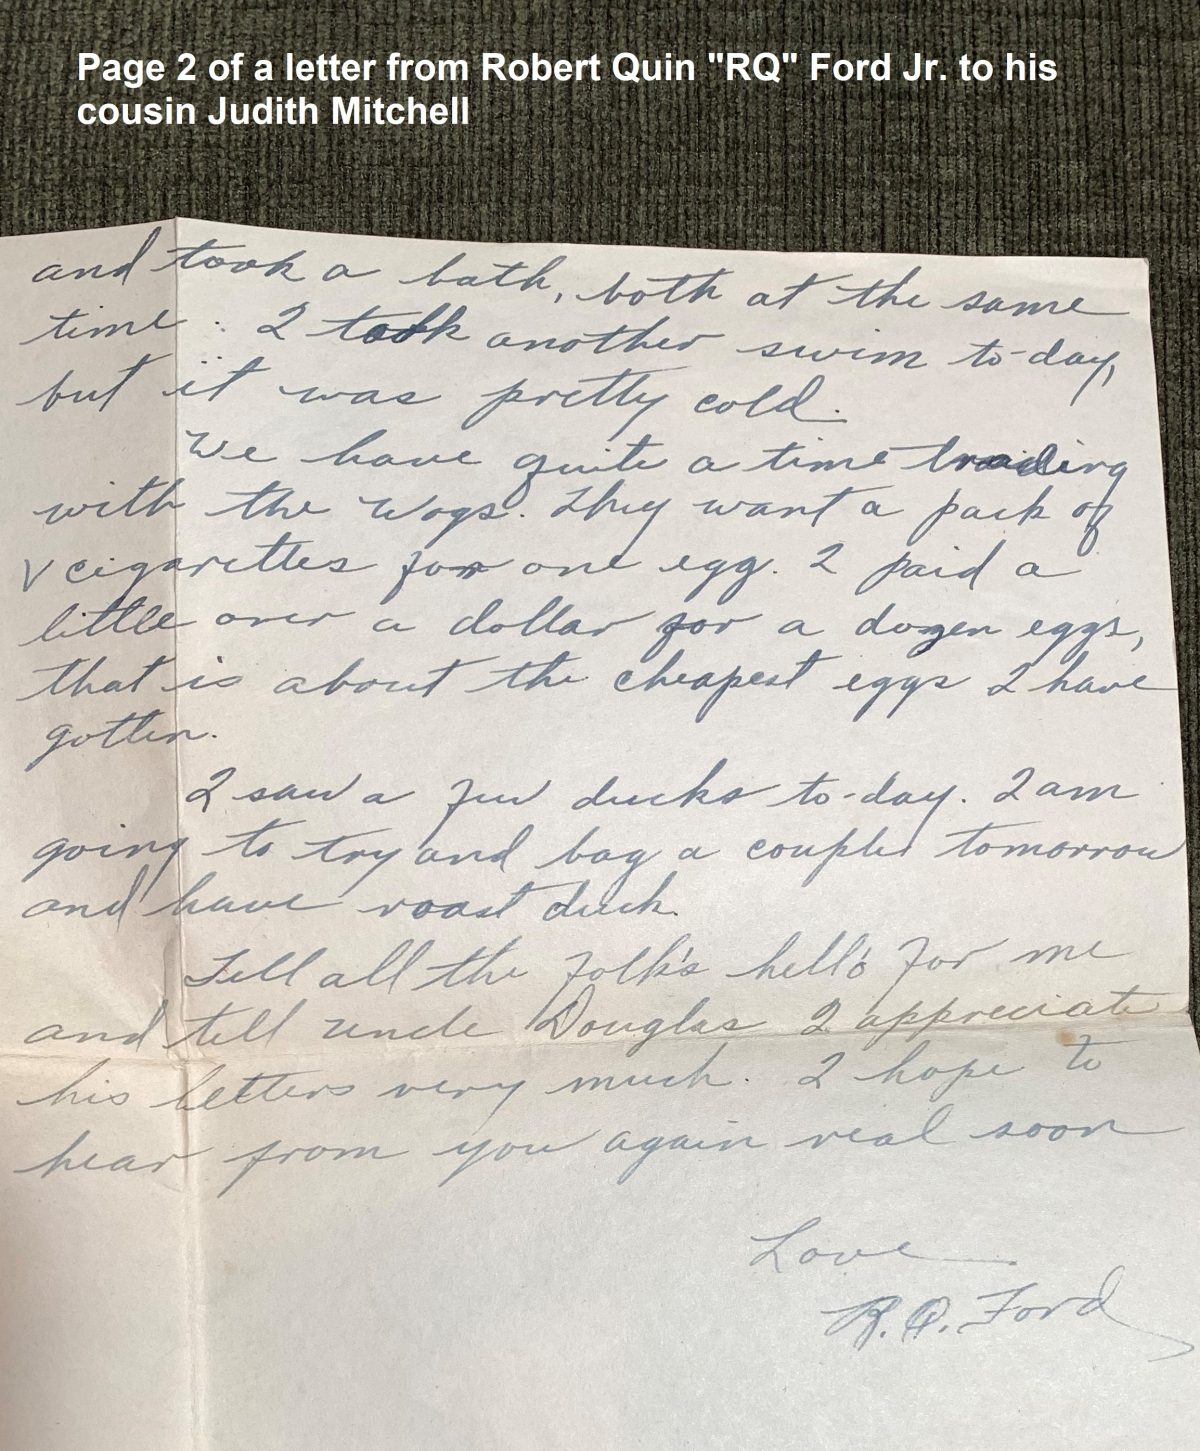 Page 2 of a letter from Robert Quin "RQ" Ford Jr. to his
cousin Judith Mitchell
and took a bath, both at the same
time. I took another swim to-day,
but it was pretty cold.
We have quite a time trading
with the Wogs. They want a pack of
cigarettes for one egg. I paid a
little over a dollar for a dozen eggs,
that is about the cheapest eggs I have
gotten.
I saw a few ducks to-day. I am
going to try and bag a couple tomorrow
and have roast duck.
Tell all the folk's hello for me
and tell uncle Douglas I appreciate
his letters very much. I hope to
hear from you again real soon
Love
R.Q. Ford